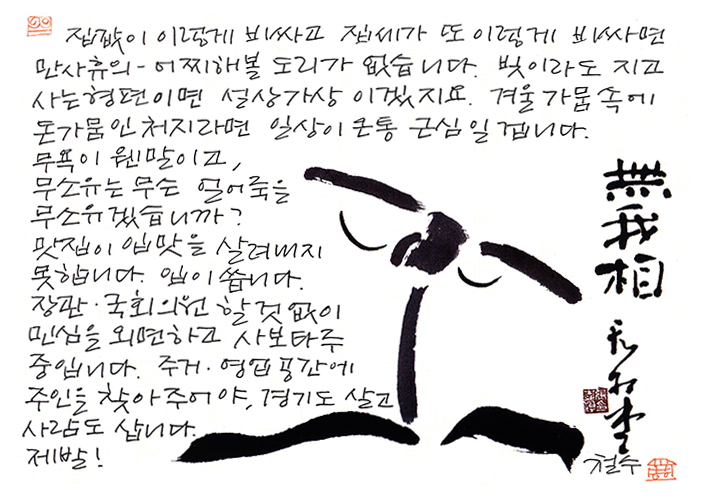 집값이 이렇게 비싸고 집세가 또 이렇게 비싸면
만사휴의 - 어찌해볼 도리가 없습니다. 빚이라도 지고
사는 형편이면 설상가상 이겠지요. 겨울 가뭄 속에
돈가뭄인 처지라면 일상이 온통 근심일 겝니다.
무욕이 웬말이고,
무소유는 무슨 얼어죽을
무소유겠습니까?
맛집이 입맛을 살려내지
못합니다. 입이 씁니다.
장판·국회의원 할 것 없이
민심을 외면하고 사보타주
중입니다. 주거·영업 공간에
주인을 찾아 주어야, 경기도 살고
사람도 삽니다.
제발!
無我相
철수